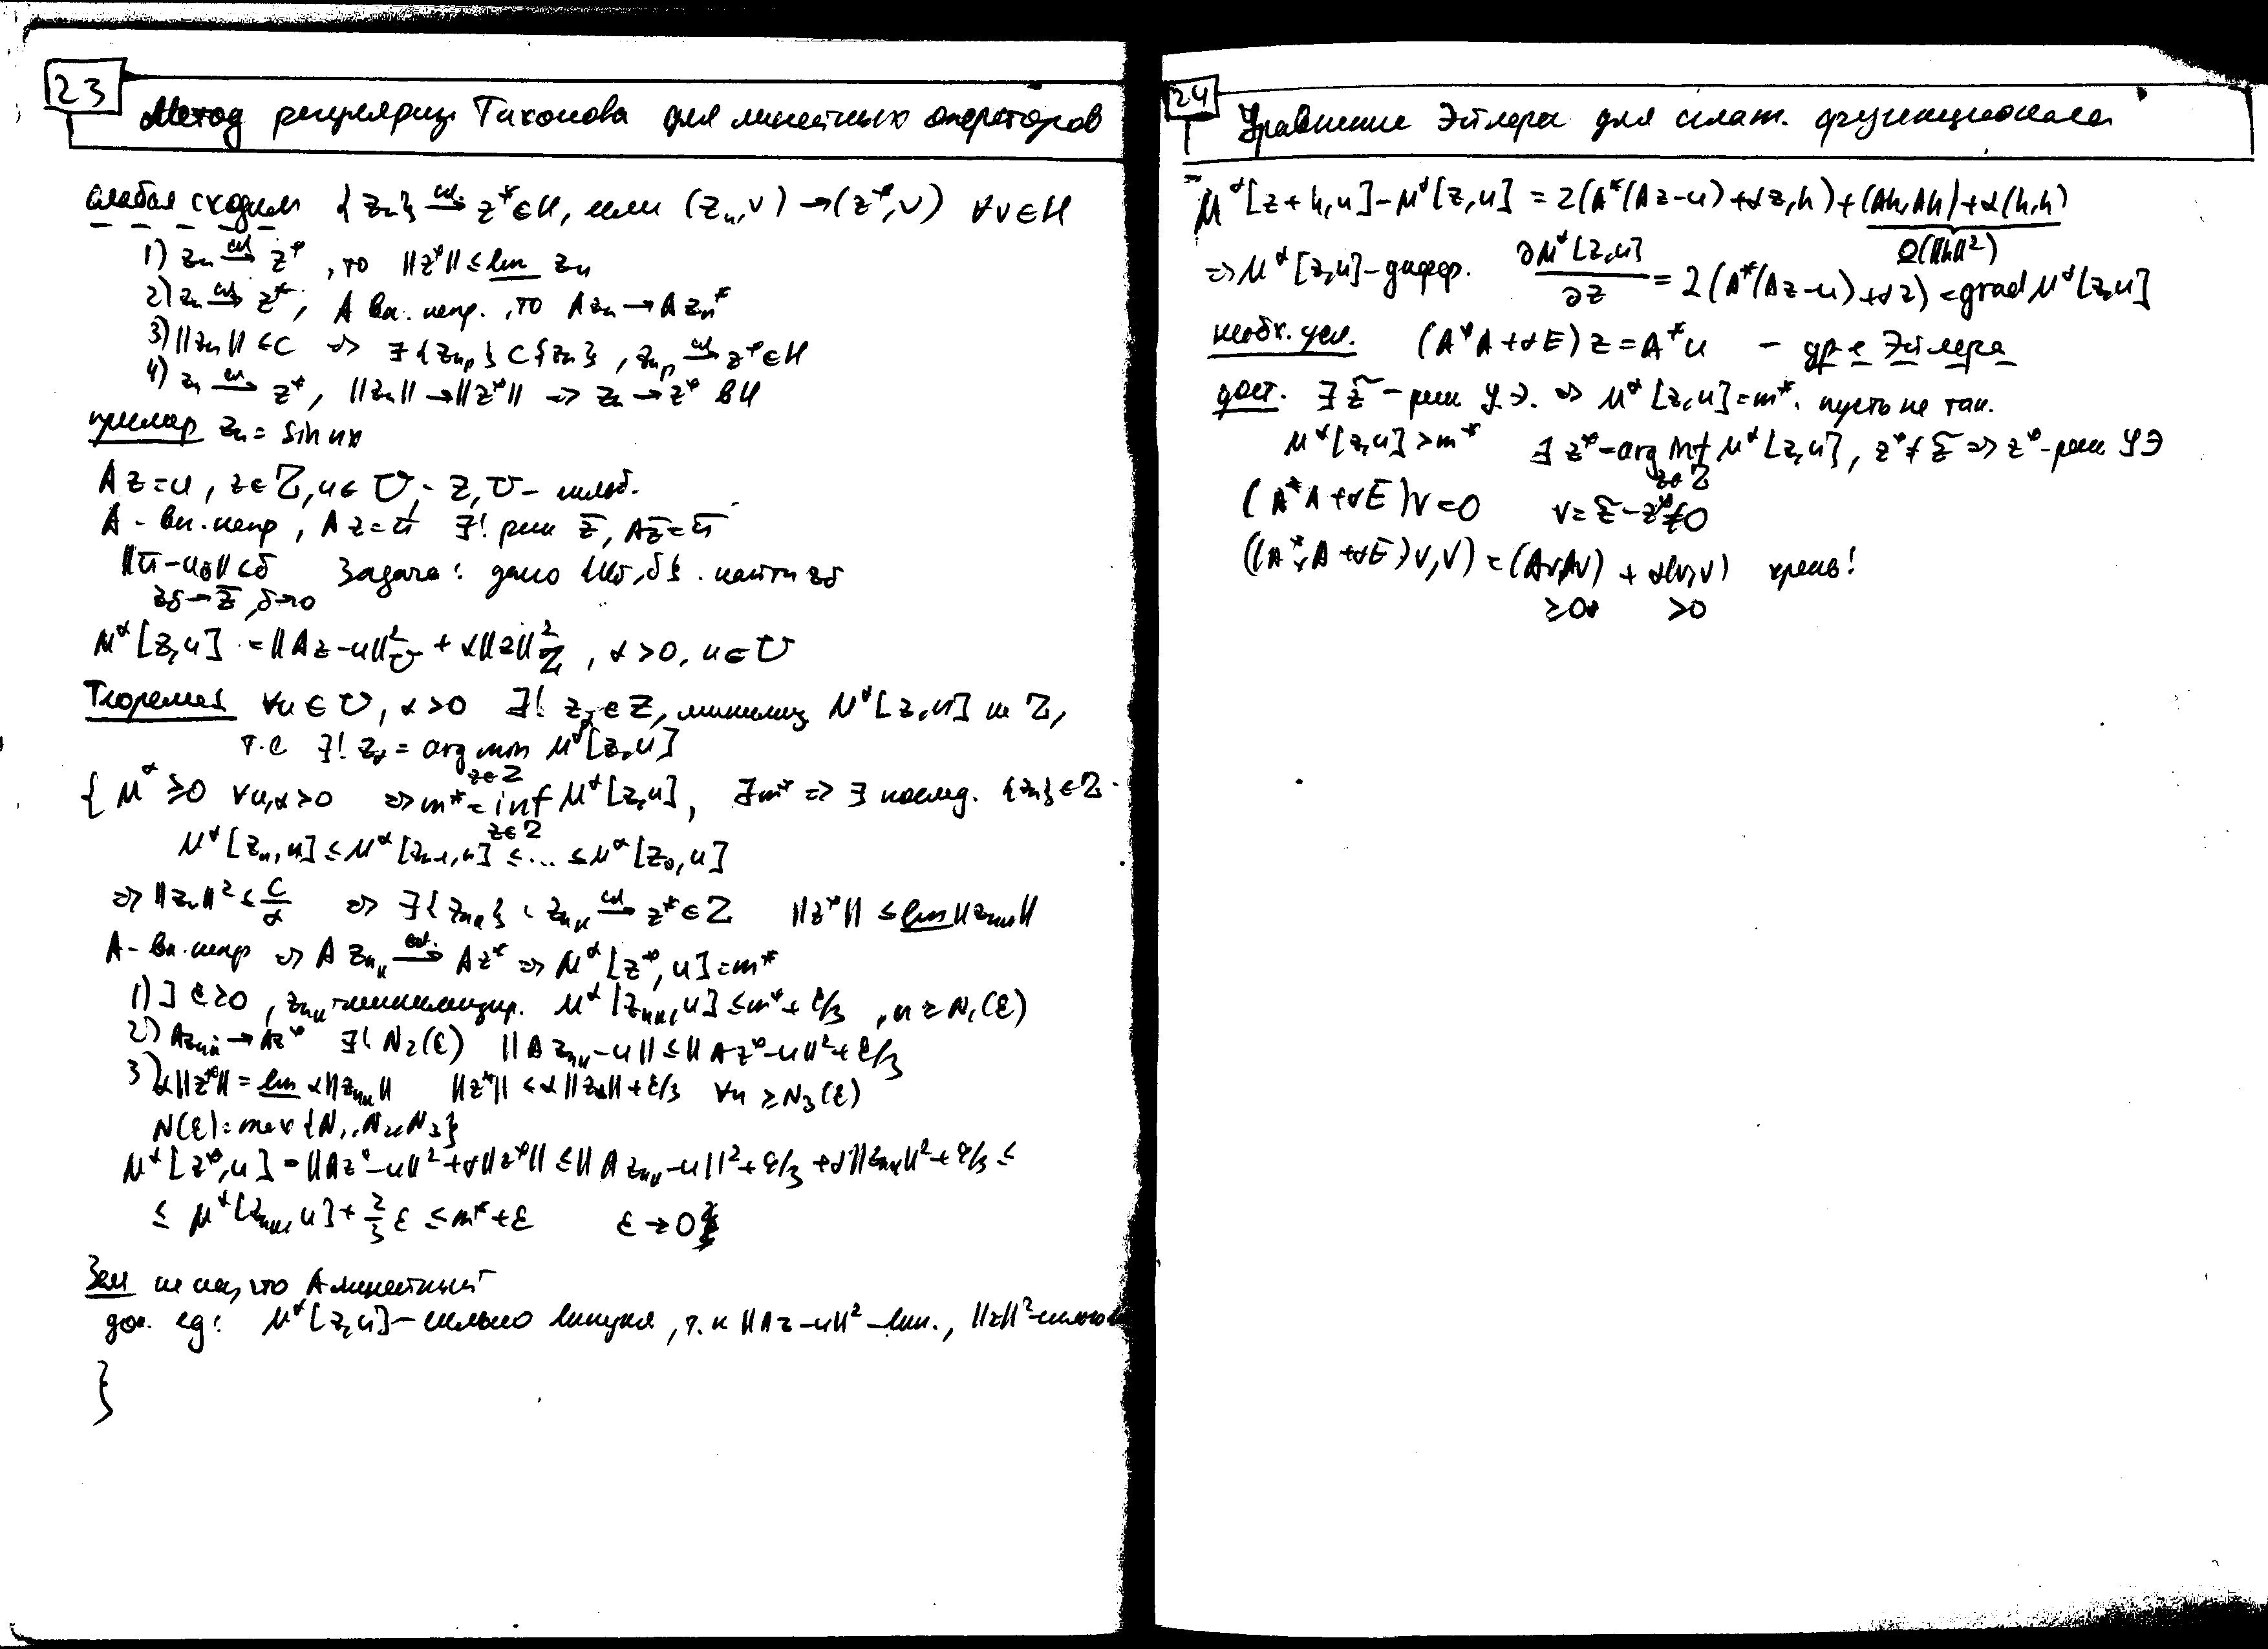 23
Метод регуляриз Тихонова для линейных операторов
слабая сходим {zₙ} →сл z* ∈ H, если (zₙ, v) → (z*, v) ∀v ∈ H
1) zₙ →сл z*, то ||z*|| ≤ lim zₙ
2) zₙ →сл z*, A вп. непр., то Azₙ → Azₙ*
3) ||zₙ|| ≤ C => ∃{zₙₚ} ⊂ {zₙ}, zₙₚ →сл z* ∈ H
4) zₙ →сл z*, ||zₙ|| → ||z*|| => zₙ → z* в H
пример zₙ = sin nx
Az = u, z ∈ Z, u ∈ U, Z, U - гильб.
A - вп. непр, Az = ū ∃! реш z̄, Az̄ = ū
||ū - u_δ|| < δ Задача: дано {u_δ, δ}. найти z_δ
z_δ → z̄, δ→0
M^α[z,u] = ||Az - u||²_U + α||z||²_Z, α > 0, u ∈ U
Теорема ∀u ∈ U, α > 0 ∃! z_α ∈ Z, минимиз M^α[z,u] на Z,
т.е ∃! z_α = arg min M^α[z,u]
z∈Z
{ M^α ≥ 0 ∀u, α > 0 => m* = inf M^α[z,u], ∃m* => ∃ послед. {zₙ} ∈ Z
z∈Z
M^α[zₙ,u] ≤ M^α[zₙ₋₁,u] ≤ ... ≤ M^α[z₀,u]
=> ||zₙ||² ≤ C/α => ∃{zₙₖ} : zₙₖ →сл z* ∈ Z ||z*|| ≤ lim ||zₙₖ||
A - вп. непр => A zₙₖ →сл Az* => M^α[z*,u] = m*
1) ∃ ε>0, zₙₖ - минимизир. M^α[zₙₖ,u] ≤ m* + ε/3, n ≥ N₁(ε)
2) Azₙₖ → Az* ∃! N₂(ε) ||Azₙₖ - u|| ≤ ||Az* - u||² + ε/3
3) α||z*|| = lim α||zₙₖ|| ||z*|| ≤ α||zₙₖ|| + ε/3 ∀n ≥ N₃(ε)
N(ε) = max{N₁, N₂, N₃}
M^α[z*,u] = ||Az* - u||² + α||z*|| ≤ ||Azₙₖ - u||² + ε/3 + α||zₙₖ||² + ε/3 ≤
≤ M^α[zₙₖ,u] + 2/3 ε ≤ m* + ε ε → 0
Зам не исп, что A линейный
док. ед: M^α[z,u] - сильно выпукл, т.к ||Az - u||² - вып., ||z||² - сильно
}
24
Уравнение Эйлера для сглаж. функционала
M^α[z+h,u] - M^α[z,u] = 2(A*(Az-u) + αz, h) + (Ah,Ah) + α(h,h)
O(||h||²)
=> M^α[z,u] - дифер. ∂M^α[z,u]/∂z = 2(A*(Az-u) + αz) = grad M^α[z,u]
необх. усл. (A*A + αE)z = A*u - ур-е Эйлера
дост. ∃ z̃ - реш У.Э. => M^α[z,u] = m*. пусть не так.
M^α[z,u] > m* ∃ z* - arg inf M^α[z,u], z* ≠ z̃ => z* - реш УЭ
z∈Z
(A*A + αE)v = 0 v = z̃ - z* ≠ 0
((A*A + αE)v,v) = (Av,Av) + α(v,v) хрень!
≥0 >0